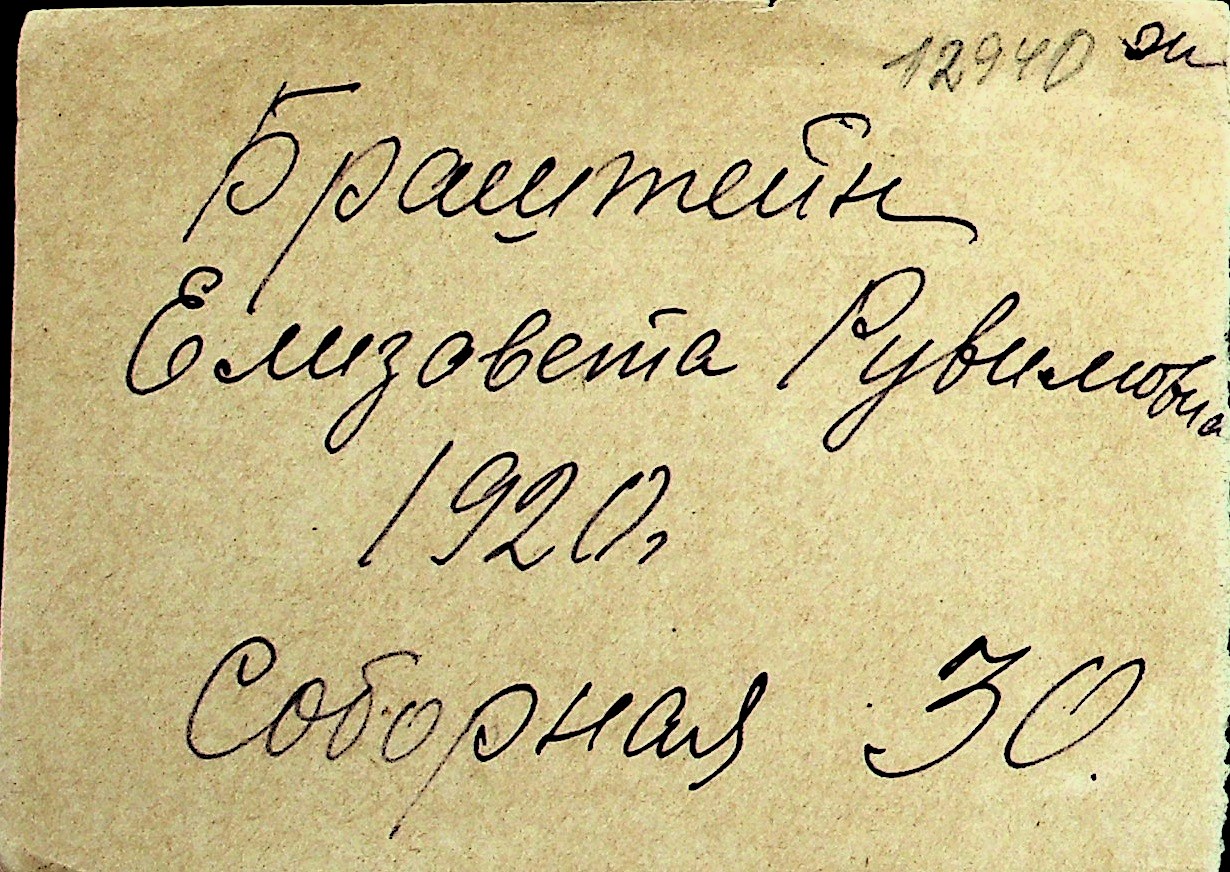 12940
Браштейн
Елизавета Рувимовна
1920г
Соборная 30.